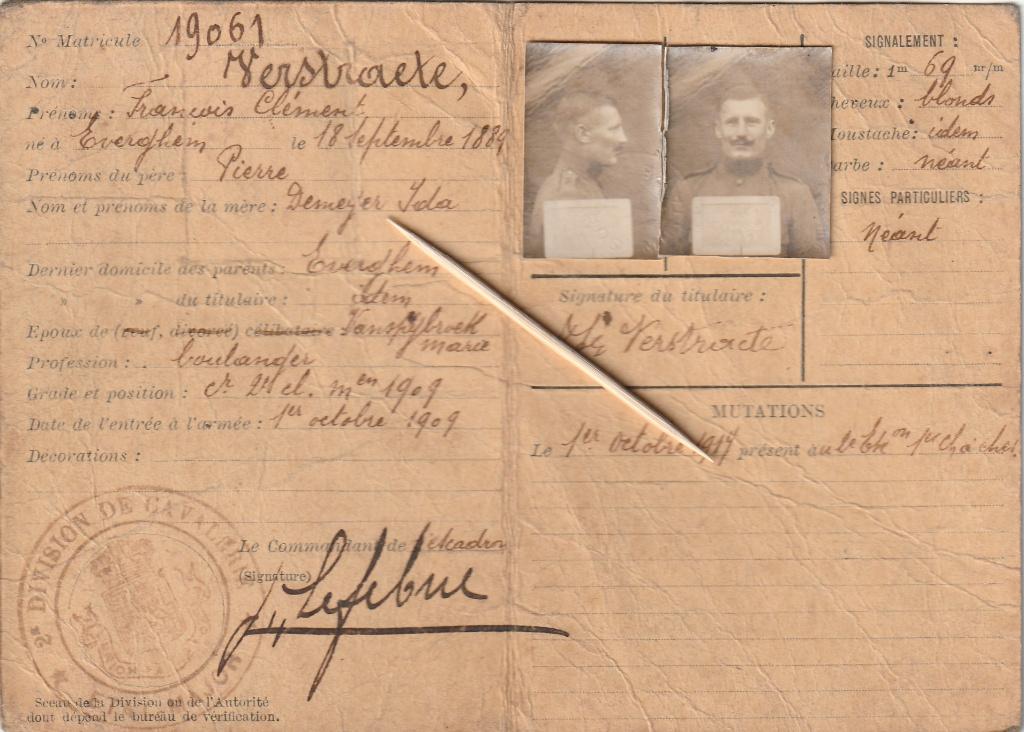 No Matricule 19061
Nom : Verstraete,
Prénoms : François Clément
né à Everghem le 18 Septembre 1889
Prénoms du père Pierre
Nom et prénoms de la mère : Demeyer Ida
Dernier domicile des parents : Everghem
» » du titulaire : Idem
Epoux de (veuf, divorcé) célibataire Vanspybroek
marie
Profession : boulanger
Grade et position : cr 2e cl. men 1909
Date de l'entrée à l'armée : 1er octobre 1909
Decorations :
Le Commandant de l'escadron
(Signature)
Lefebvre
2e DIVISION DE CAVALERIE
Sceau de la Division ou de l'Autorité
dont dépend le bureau de vérification.
SIGNALEMENT :
aille : 1m 69 m/m
heveux : blonds
Moustache : idem
arbe : néant
SIGNES PARTICULIERS :
Néant
Signature du titulaire :
Verstraete
MUTATIONS
Le 1er octobre 1917 présent au